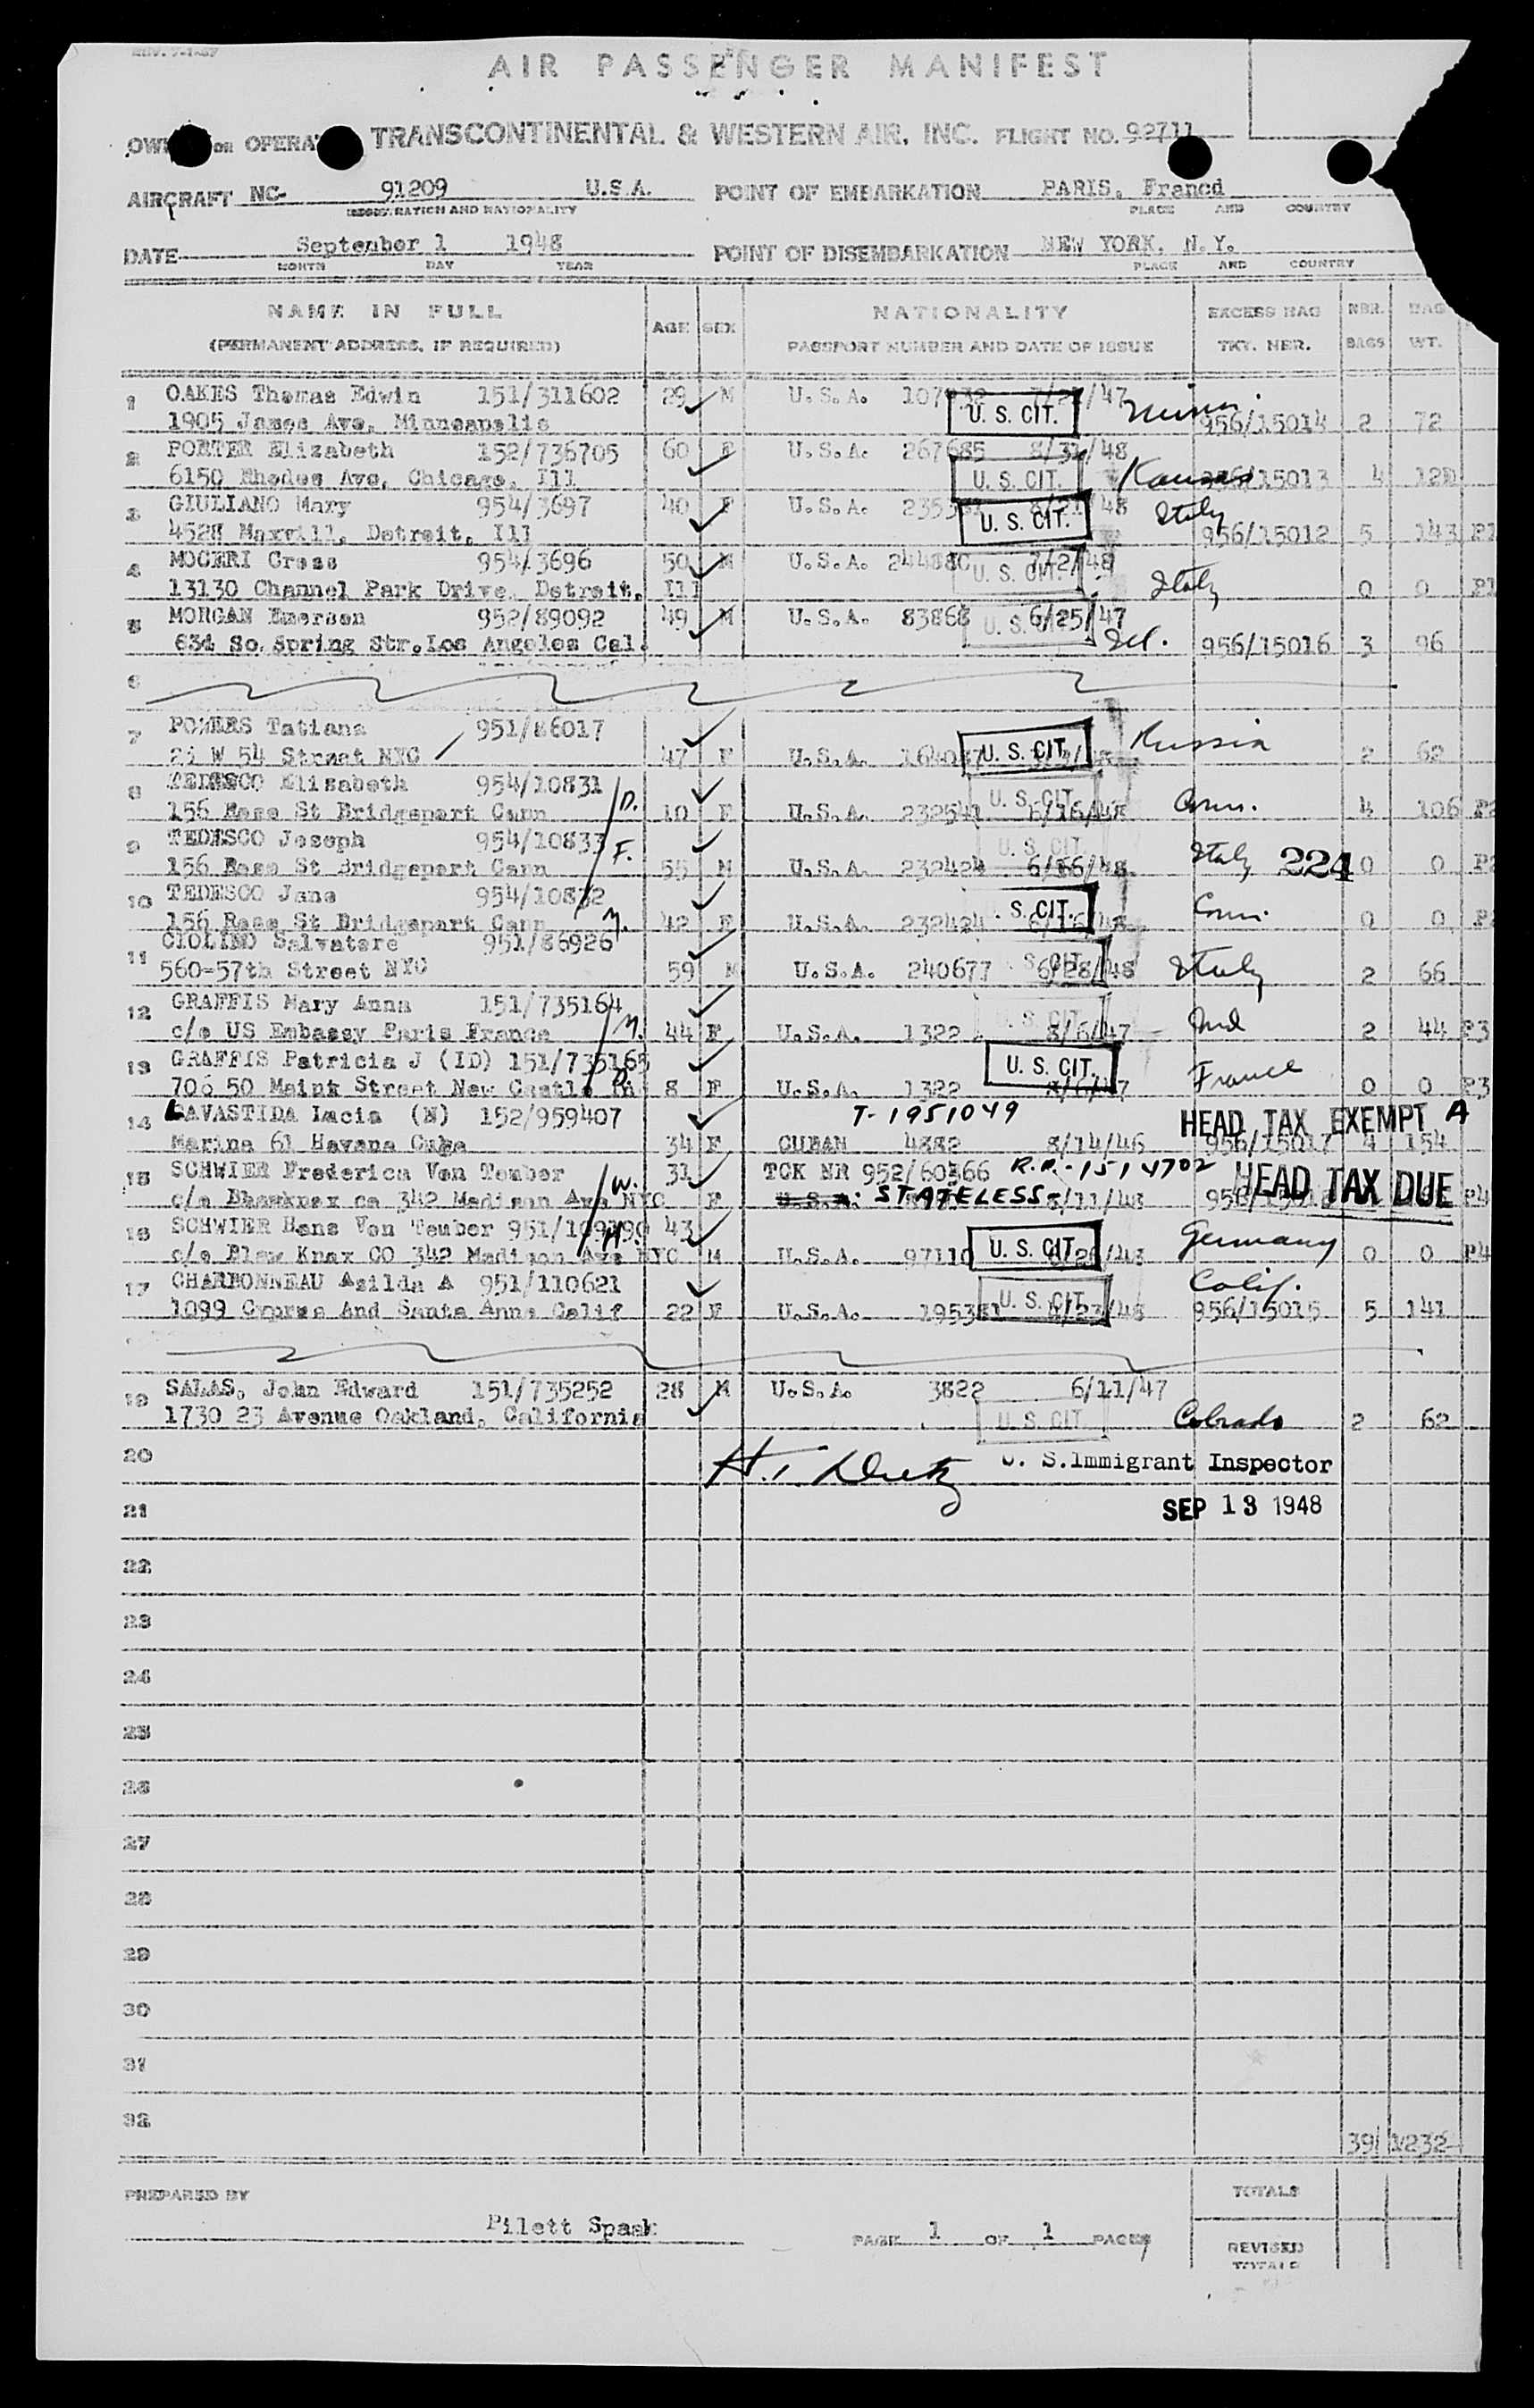 REV. 7-1-47
AIR PASSENGER MANIFEST
OPERAT TRANSCONTINENTAL & WESTERN AIR, INC. FLIGHT NO. 92711
AIRCRAFT NC- 91209 U.S.A. POINT OF EMBARKATION PARIS, Francd
REGISTRATION AND NATIONALITY PLACE AND COUNTRY
DATE September 1 1948 POINT OF DISEMBARKATION NEW YORK, N.Y.
MONTH DAY YEAR PLACE AND COUNTRY
NAME IN FULL AGE SEX NATIONALITY EXCESS BAG NBR. BAG
(PERMANENT ADDRESS, IF REQUIRED) PASSPORT NUMBER AND DATE OF ISSUE TKT. NBR. BAGS WT.
1 OAKES Thomas Edwin 151/311602 29 M U.S.A. /47
1905 James Ave, Minneapolis U. S. CIT. 956/15014 2 72
2 PORTER Elizabeth 152/736705 60 F U.S.A. 267685 8/31/48
6150 Rhodes Ave, Chicago, Ill U. S. CIT. Kansas /15013 4 120
3 GIULIANO Mary 954/3697 40 F U.S.A. /48 Italy
4528 Maxvill, Detroit, Ill U. S. CIT. 956/15012 5 143 P1
4 MOCERI Cross 954/3696 50 M U.S.A. 244880 7/2/48
13130 Channel Park Drive, Detroit, Ill U. S. CIT. Italy 0 0 P1
5 MORGAN Emerson 952/89092 49 M U.S.A. 83868 6/25/47
634 So. Spring Str. Los Angeles Cal. U. S. CIT. 956/15016 3 96
6
7 POWERS Tatiana 951/86017
21 W 54 Street NYC 47 F U.S.A. U. S. CIT. Russia 2 62
8 TEDESCO Elisabeth 954/10831 D.
156 Rose St Bridgeport Conn 10 F U.S.A. 232541 6/16/48 U. S. CIT. Conn. 4 106 P2
9 TEDESCO Joseph 954/10833 F.
156 Rose St Bridgeport Conn 55 M U.S.A. 232424 6/16/48 U. S. CIT. Italy 224 0 0 P2
10 TEDESCO Jane 954/10832
156 Rose St Bridgeport Conn M. 42 F U.S.A. 232424 6/16/48 . S. CIT. Conn. 0 0 P2
11 CIOLINO Salvatore 951/86926
560-57th Street NYC 59 M U.S.A. 240677 6/28/48 S. CIT. Italy 2 66
12 GRAFFIS Mary Anna 151/735164
c/o US Embassy Paris France M. 44 F U.S.A. 1322 8/6/47 U. S. CIT. Ind 2 44 P3
13 GRAFFIS Patricia J (ID) 151/735165 U. S. CIT.
706 50 Maink Street New Castle D. 8 F U.S.A. 1322 8/6/47 France 0 0 P3
14 LAVASTIDA Lucia (N) 152/959407 T-1951049 HEAD TAX EXEMPT A
Marina 61 Havana Cuba 34 F CUBAN 4882 8/14/46 956/15017 4 154
15 SCHWIER Frederica Von Teuber 31 TCK NR 952/60366 R.P.-1514702 HEAD TAX DUE
342 Madison Ave NYC W. F U.S.A: STATELESS /11/48 P4
16 SCHWIER Hans Von Teuber 43
c/o Blaw Knax CO 342 Madison Ave NYC H. M U.S.A. 97110 U. S. CIT. Germany 0 0 P4
17 CHARBONNEAU Asilda A 951/110621 Calif.
1099 Cypres And Santa Anna Calif 22 F U.S.A. 195381 /23/48 U. S. CIT. 956/15015 5 141
19 SALAS, John Edward 151/735252 28 M U.S.A. 3822 6/11/47
1730 23 Avenue Oakland, California U. S. CIT. Colorado 2 62
20 U. S. Immigrant Inspector
21 SEP 13 1948
22
23
24
25
26
27
28
29
30
31
32
39 1232
PREPARED BY Pilett Spaak PAGE 1 OF 1 PAGES
TOTALS
REVISED
TOTALS